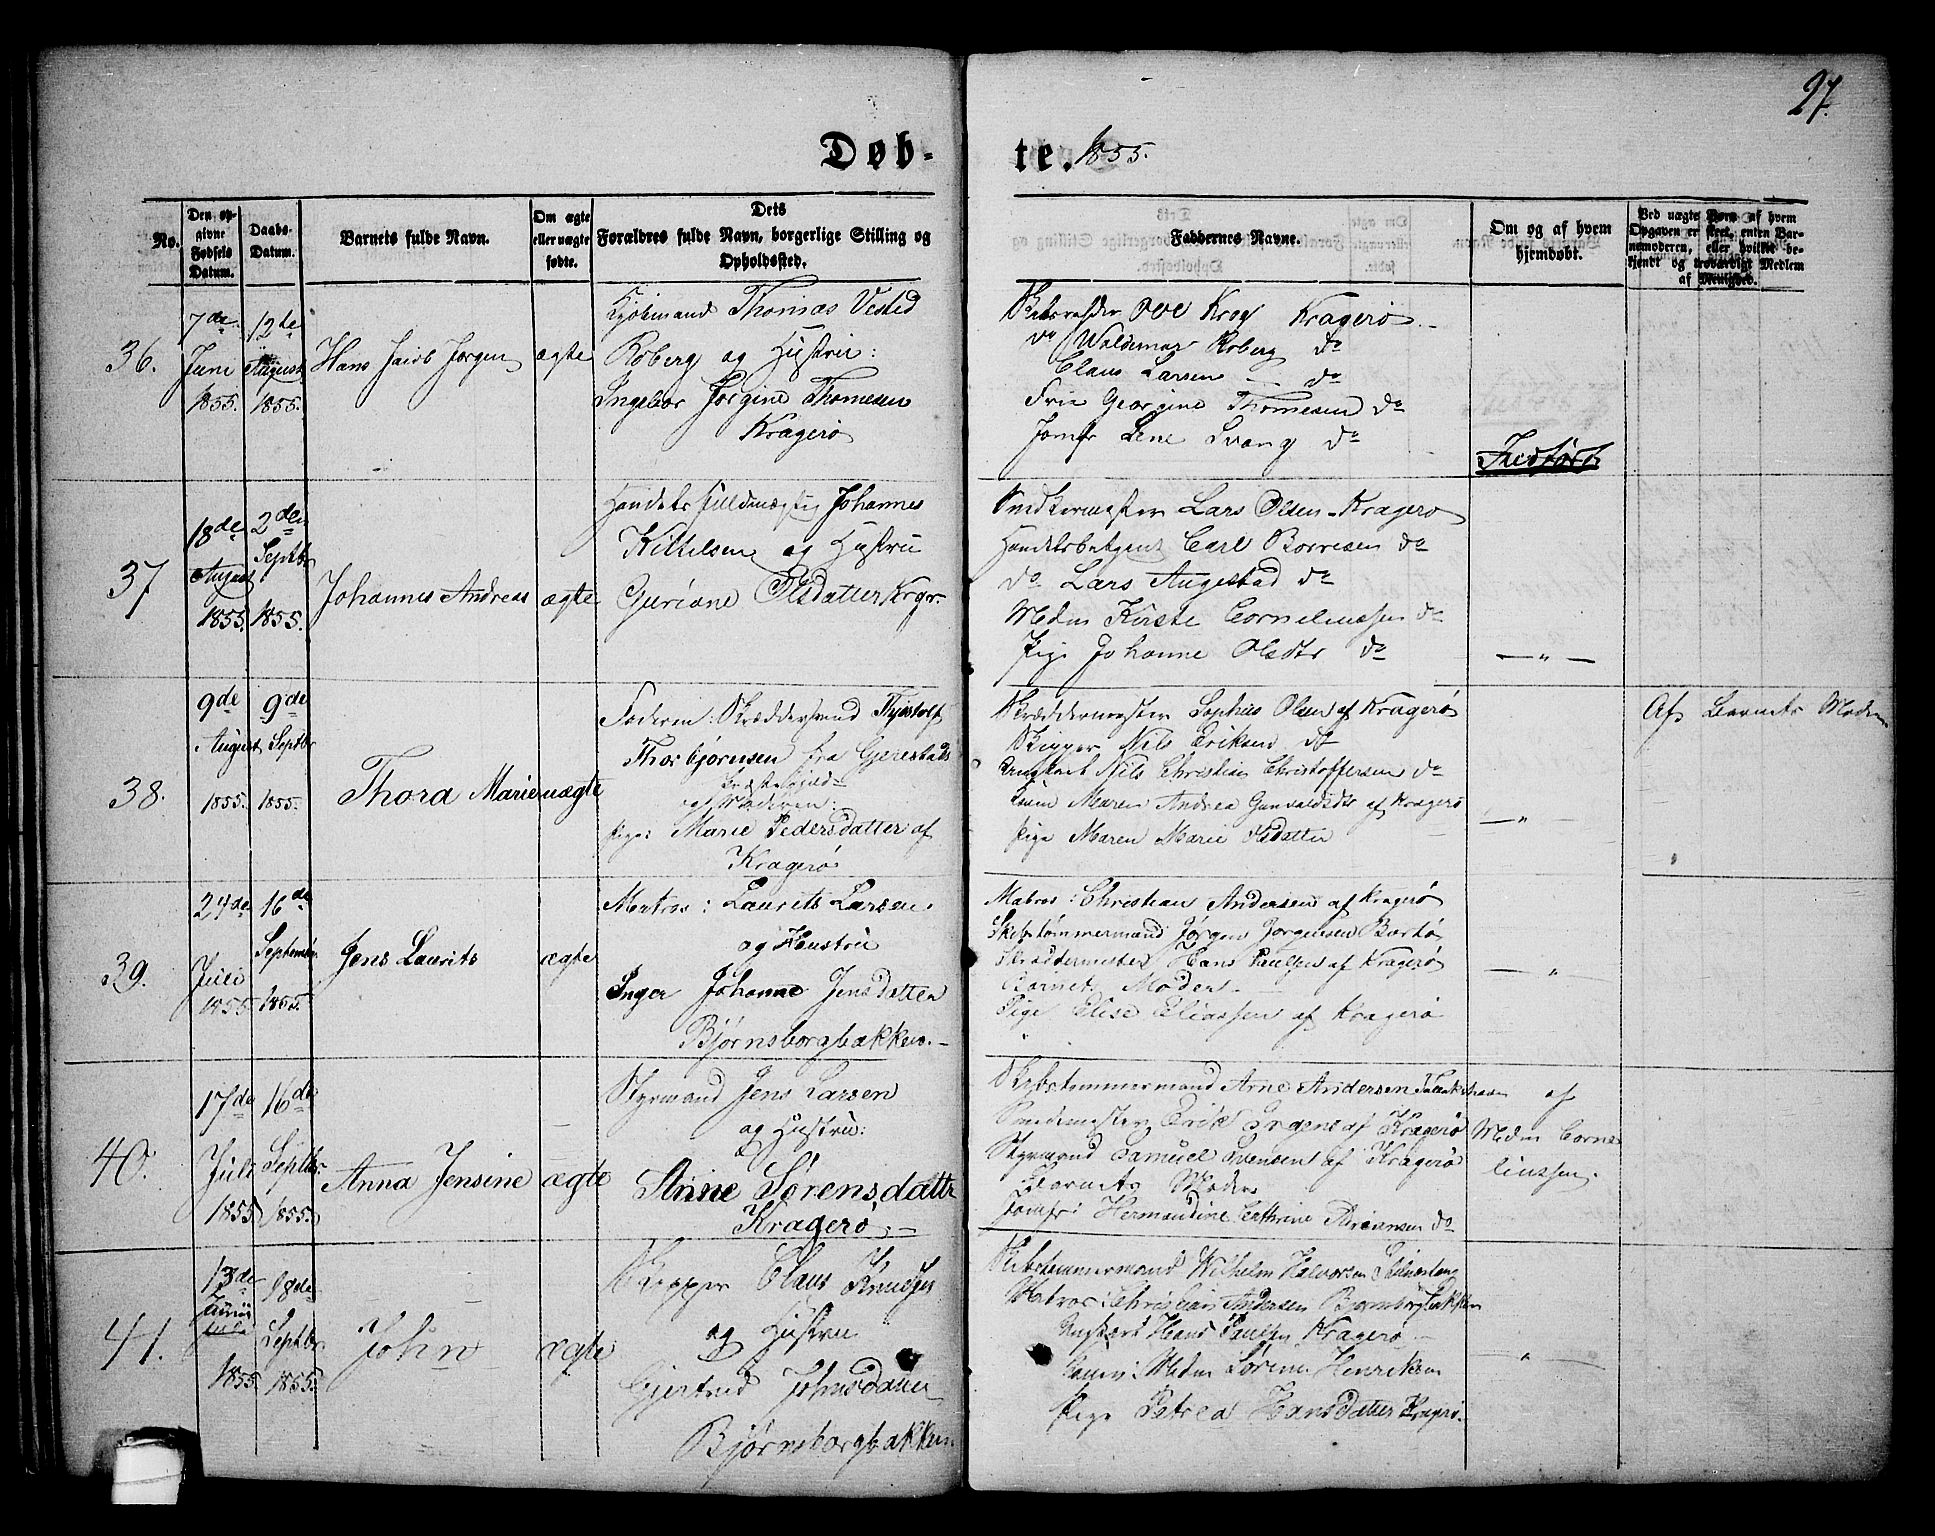 97.
Døb-
te. 1855.
No.
Den op-
givne
Fødsels
Datum.
Daabs-
Datum.
Barnets fulde Navn.
Om ægte
eller uægte
fødte.
Dets
Forældres fulde Navn, borgerlige Stilling og
Opholdssted.
Faddernes Navne.
Om og af hvem
hjemdøbt.
Ved uægte Børn af hvem
Opgaven er skeet, enten Bar-
nemoderen, eller hvilke be-
kjendt og troværdigt Medlem
af Menighed.
36.
7de
Juni
1855.
12te
August
1855.
Hans Jacob Jørgen
ægte
Kjøbmand Thomas Vested
Roberg og Hustru:
Ingebor Jørgine Thomesen
Kragerø
Ove Krog Kragerø
do Waldemar Roberg do
Claus Larsen - do
Fru Georgine Thomesen do
Jomfr Lene Svang do
37
18de
August
1855.
2den
Septbr
1855.
Johannes Andreas
ægte
Handels fuldmægtig Johannes
Kittelsen og Hustru
Guriane Olsdatter Krgr.
Snedkermester Lars Olsen - Kragerø
Handelsbetjent Carl Borresen do
do Lars Augestad do
Mdm Kirste Corneliussen do
Pige Johanne Olsdtr do
— " —
38.
9de
August
1855.
9de
Septbr
1855.
Thora Marie
uægte
Faderen: Skræddersvend
Thorbjørnsen fra Gjerestads
Præstegjeld
og Moderen:
Pige: Marie Pedersdatter af
Kragerø
Skræddermester Sophus Olsen af Kragerø
Skipper Nils Eriksen do
Ungkarl Nils Christian Christoffersen do
Maren Andrea Gunvaldsdtr af Kragerø
Pige Maren Marie Olsdatter
— " —
Af Barnets Moder
39.
24de
Juli
1855
16de
September
1855.
Jens Laurits
ægte
Matros: Laurits Larsen
og Haustru
Inger Johanne Jensdatter
Bjørnsborgbakken. -
Matros: Christian Andersen af Kragerø
Skibstømmermand Jørgen Jørgensen Barthø
Skræddermester Hans Paulsen af Kragerø
Barnets Moder -
Pige Elise Eliassen af Kragerø
— " —
40.
17de
Juli
1855
16de
Septbr
1855.
Anna Jensine
ægte
Styrmand Jens Larsen
og Hustru:
Anne Sørensdattr
Kragerø. -
Skibstømmermand Arne Andersen
Erik af Kragerø
Styrmand Samuel Svensen af Kragerø
Barnets Moder
Jomfr: Hermandine Cathrine do
af
Mdm Corne
liussen.
41.
13de
Juni
1855.
18de
Septbr
1855.
John
ægte
Skipper Claus Knudsen
og Hustru
Gjertrud Johnsdatter
Bjørnsborgbakken.
Skibstømmermand Wilhelm Halvorsen
Matros: Christian Andersen Bjørnsborgbakken
Ungkarl Hans Paulsen Kragerø
Mdm Sørine Henriksen
Pige Petrea Hansdatter Kragerø.
— " —